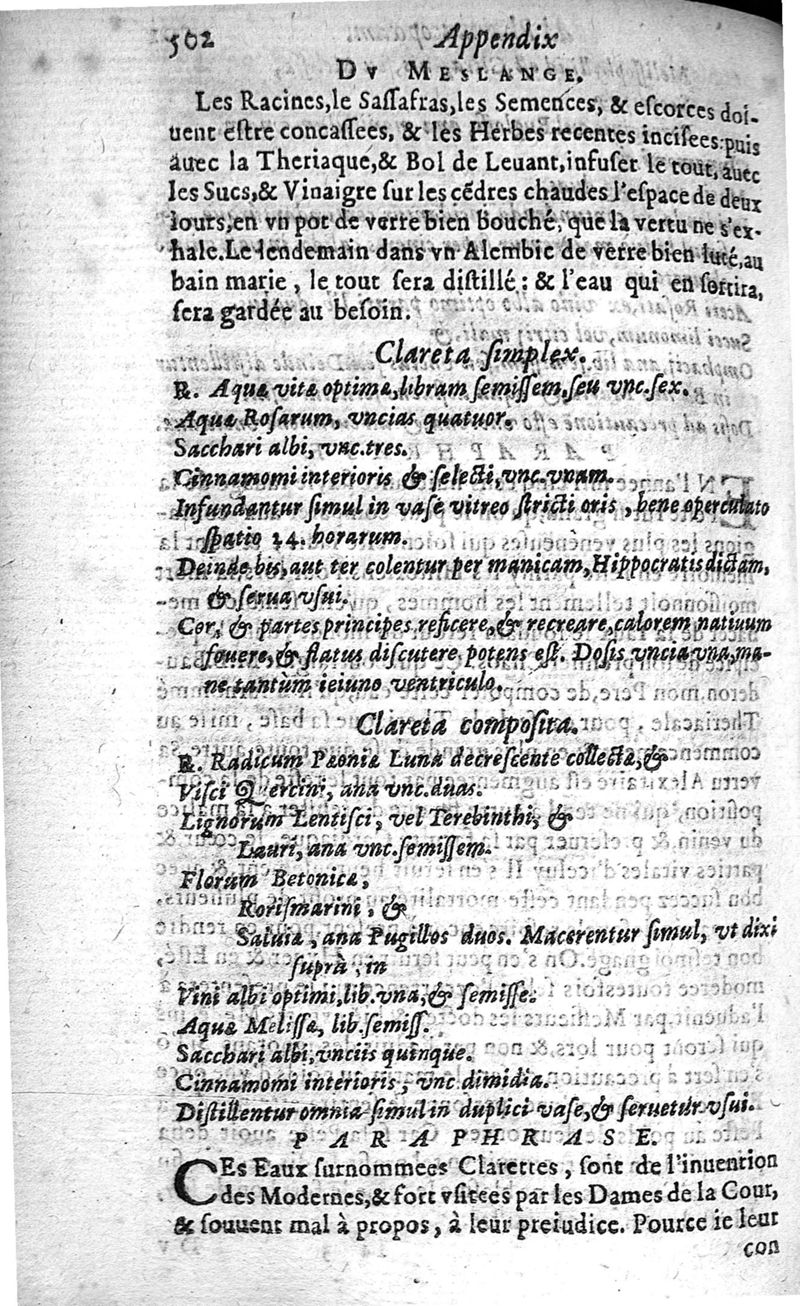 502 Appendix
Dv Meslange.
Les Racines, le Saſſafras, les Semences, & eſcorces doi-
uent eſtre concaſſees, & les Herbes recentes inciſees: puis
auec la Theriaque, & Bol de Leuant, infuſer le tout, auec
les Sucs, & Vinaigre ſur les cẽdres chaudes l'eſpace de deux
iours, en vn pot de verre bien bouché, que la vertu ne s'ex-
hale. Le lendemain dans vn Alembic de verre bien luté, au
bain marie, le tout ſera diſtillé: & l'eau qui en ſortira,
ſera gardée au beſoin.
Clareta ſimplex.
℞. Aquæ vitæ optimæ, libram ſemiſſem, ſeu vnc. ſex.
Aquæ Roſarum, vncias quatuor.
Sacchari albi, vnc. tres.
Cinnamomi interioris & ſelecti, vnc. vnam.
Infundantur ſimul in vaſe vitreo ſtricti oris, bene operculato
ſpatio 24. horarum.
Deinde bis, aut ter colentur per manicam, Hippocratis dictam,
& ſerua vſui.
Cor, & partes principes reficere, & recreare, calorem natiuum
fouere, & flatus diſcutere potens eſt. Doſis vncia vna, ma-
ne tantùm ieiuno ventriculo.
Clareta compoſita.
℞. Radicum Pæoniæ Luna decreſcente collectæ, &
Viſci Quercini, ana vnc. duas.
Lignorum Lentiſci, vel Terebinthi, &
Lauri, ana vnc. ſemiſſem.
Florum Betonicæ,
Roriſmarini, &
Saluiæ, ana Pugillos duos. Macerentur ſimul, vt dixi
ſuprà, in
Vini albi optimi, lib. vna, & ſemiſſe.
Aquæ Meliſſæ, lib. ſemiſſ.
Sacchari albi, vnciis quinque.
Cinnamomi interioris, vnc. dimidia.
Diſtillentur omnia ſimul in duplici vaſe, & ſeruetur vſui.
PARAPHRASE.
CEs Eaux ſurnommees Clarettes, ſont de l'inuention
des Modernes, & fort vſitées par les Dames de la Cour,
& ſouuent mal à propos, à leur preiudice. Pource ie leur
con